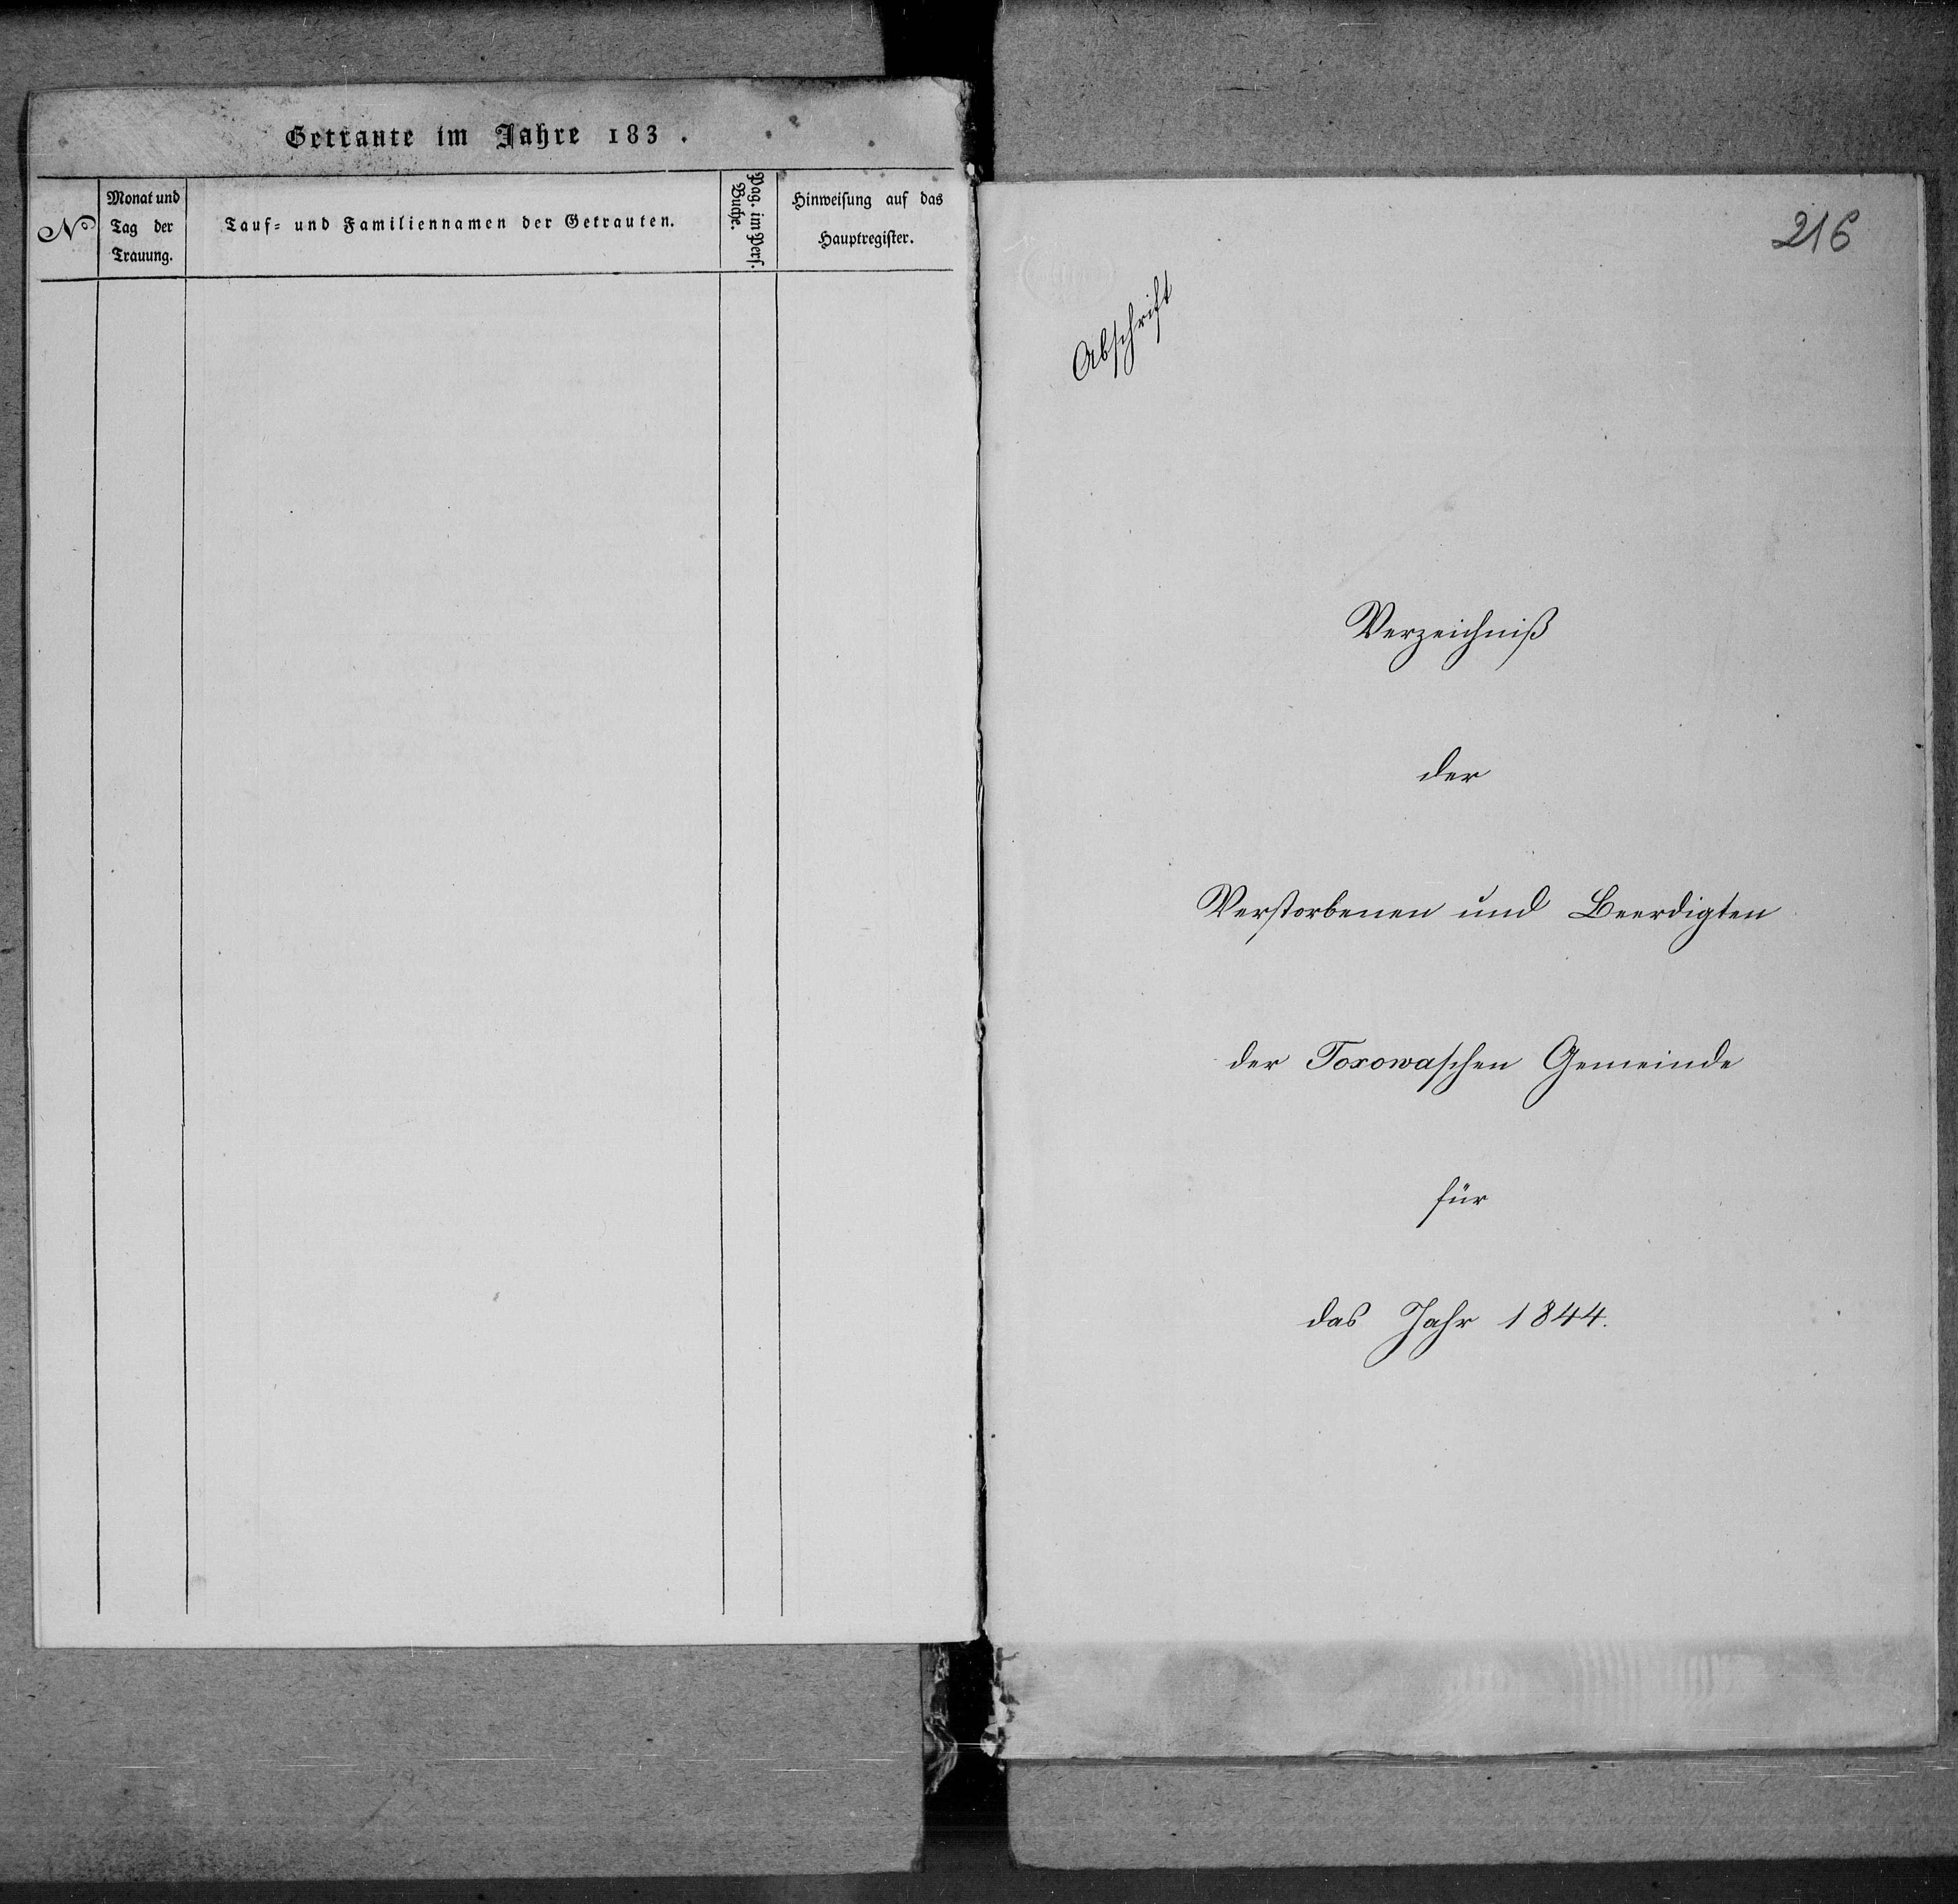 Getraute im Jahre 183 .
№
Monat und
Tag der
Trauung.
Tauf- und Familiennamen der Getrauten.
Pag. im Pers.
Buche.
Hinweisung auf das
Hauptregister.
216
Abschrift
Verzeichniß
der
Verstorbenen und Beerdigten
der Toxowaschen Gemeinde
für
das Jahr 1844.